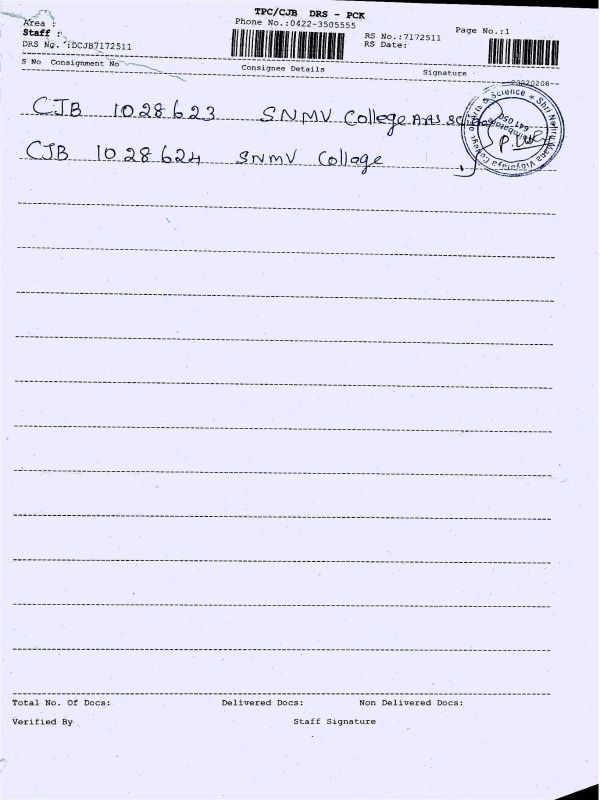 TPC/CJB DRS - PCK
Area :
Phone No.:0422-3505555
Page No.:1
Staff :
RS No.:7172511
DRS No. :DCJB7172511
RS Date:
S No Consignment No
Consignee Details
Signature
20220208--
CJB 1028623 SNMV College Arts
CJB 1028624 SNMV College
Science * Shri Nehru Maha Vidyalaya College of Arts &
Coimbatore
641 050
Total No. Of Docs:
Delivered Docs:
Non Delivered Docs:
Verified By
Staff Signature